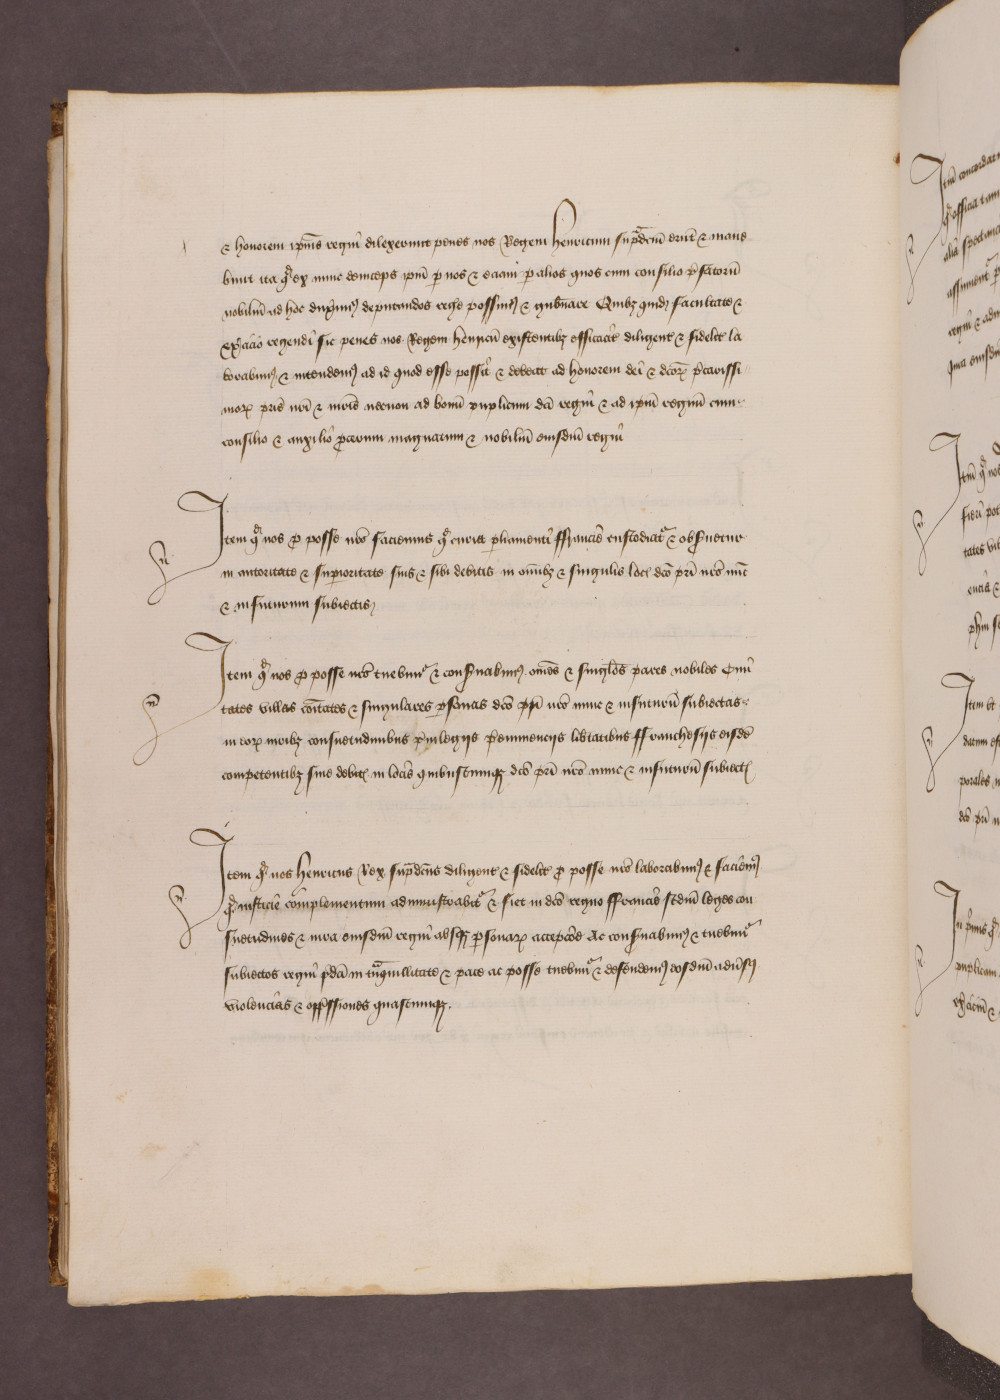 & honorem ipius regni dilexerunt penes nos Regem henricum supradcm erunt & mane
bunt ita qd ex nunc deinceps ipm p nos & eciam p alios quos cum consilio p̄fatorū
nobiliū ad hoc duxim9 deputandos rege possim9 & gubnare Quibz quidē facultate &
exercicio regendi sic penes nos Regem henricū existentibz efficacit diligent & fidelit la
borabim9 & intendem9 ad id quod esse possit & debeat ad honorem dei & dcorꝝ p̄carissi
morꝝ pris nri & mris necnon ad bonū puplicum dci regni & ad ipm regnū cum
consilio & auxilio procerum magnatum & nobiliū eiusdm regni
Item qd nos pro posse nro faciemus qd curia parliamenti ffrancie custodiat & obseruetur
in autoritate & superioritate suis & sibi debitis in omibz & singulis locis dco pri nro nūc
& infuturum subiectis
Item qd nos pro posse nro tuebim & conseruabim9 omēs & singlos pares nobiles Ciui
tates villas coītates & singulares psonas dco pri nro nunc & infuturū subiectas
in eorꝝ iuribz consuetudinibus priuilegiys preeminenciys libtatibus ffranchesiys eisdē
competentibz siue debitis in locis quibuscunqz dco pri nro nunc & infuturū subiectis
Item qd nos henricus Rex supradcus diligent & fidelit pro posse nro laborabim9 & faciem9
qd iusticie complementum administrabit & fiet in dco regno ffrancie scdm leges con
suetudines & iura eiusdm regni absqz psonarꝝ accepcōe Ac conseruabim9 & tuebim
subiectos regni p̄dci in tranquillitate & pace ac posse tuebim & defendem9 eosdm aduers9
violencias & opp̄ssiones quascunqz.